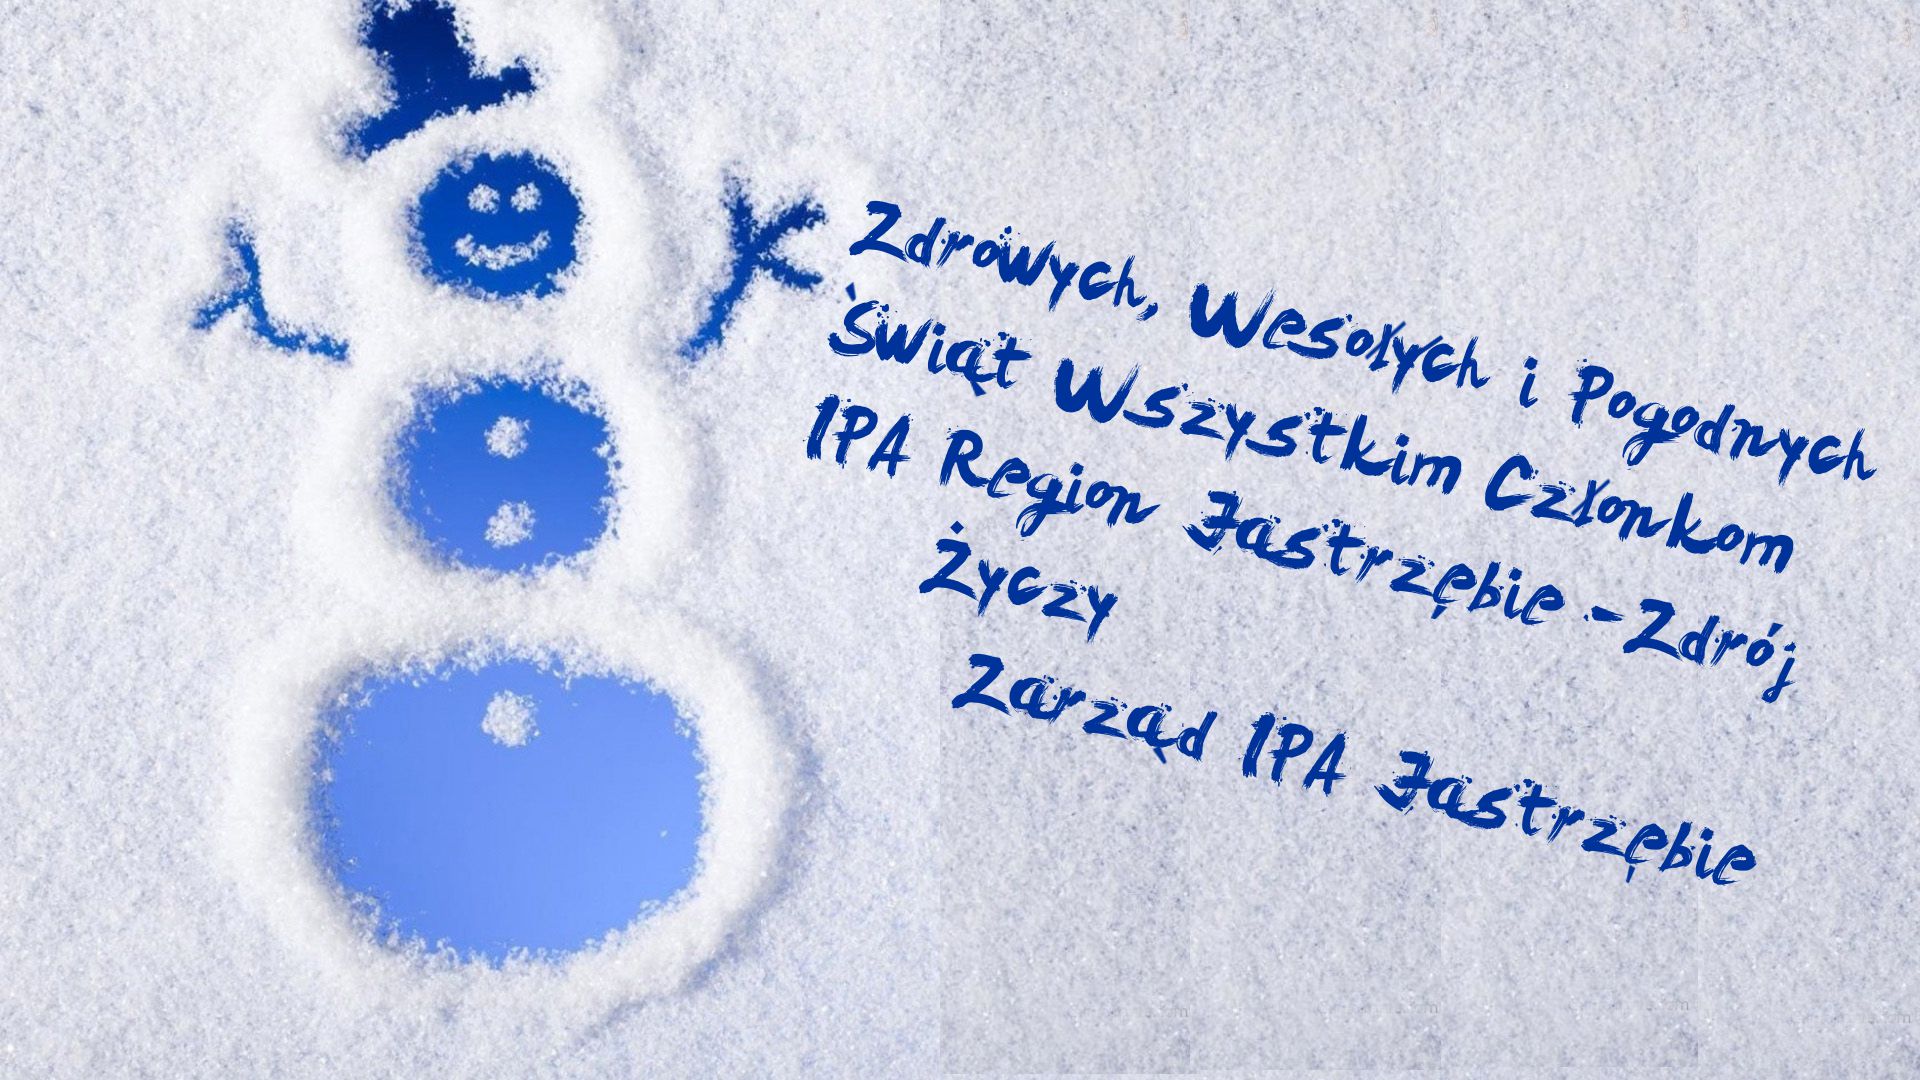 Zdrowych, Wesołych i Pogodnych
Świąt Wszystkim Członkom
IPA Region Jastrzębie - Zdrój
Życzy
Zarząd IPA Jastrzębie